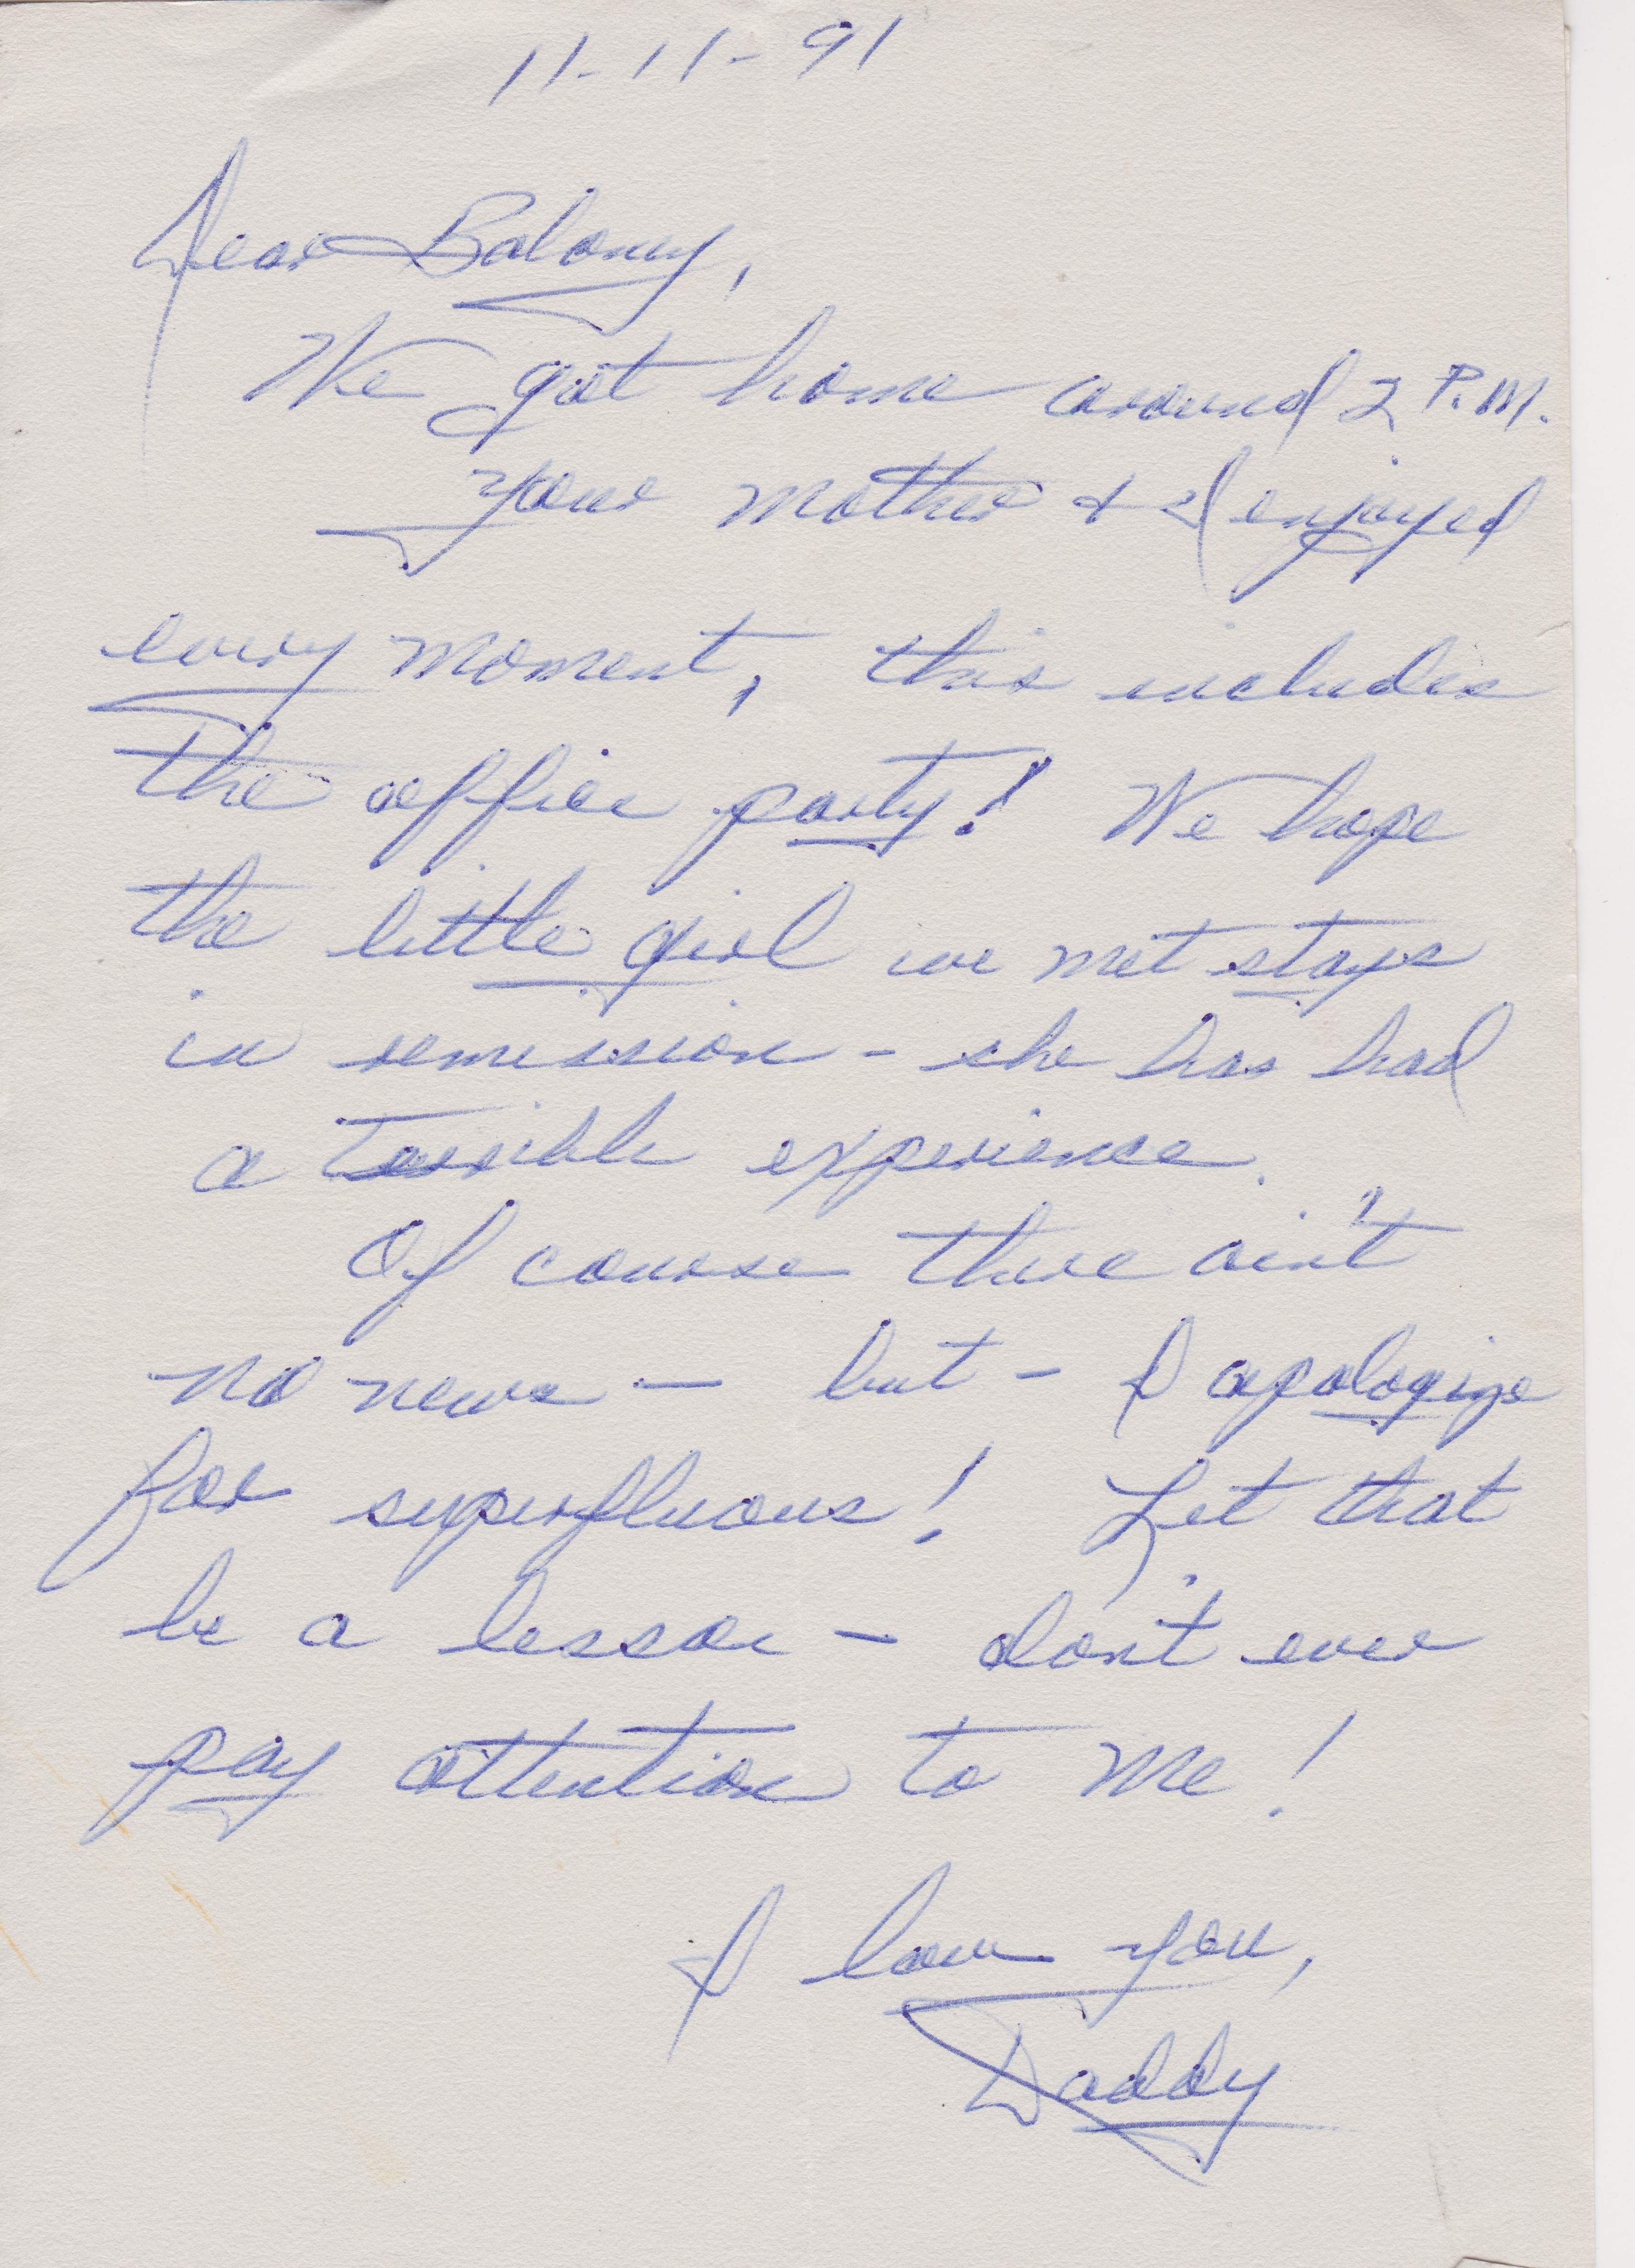 11-11-91
Dear Baloney,
We got home around 2 P.M.
Your mother & I enjoyed
every moment, this includes
the office party! We hope
the little girl we met stays
in remission - she has had
a terrible experience.
Of course there ain't
no news — but - I apologize
for superfluous! Let that
be a lesson - don't ever
pay attention to me!
I love you,
Daddy